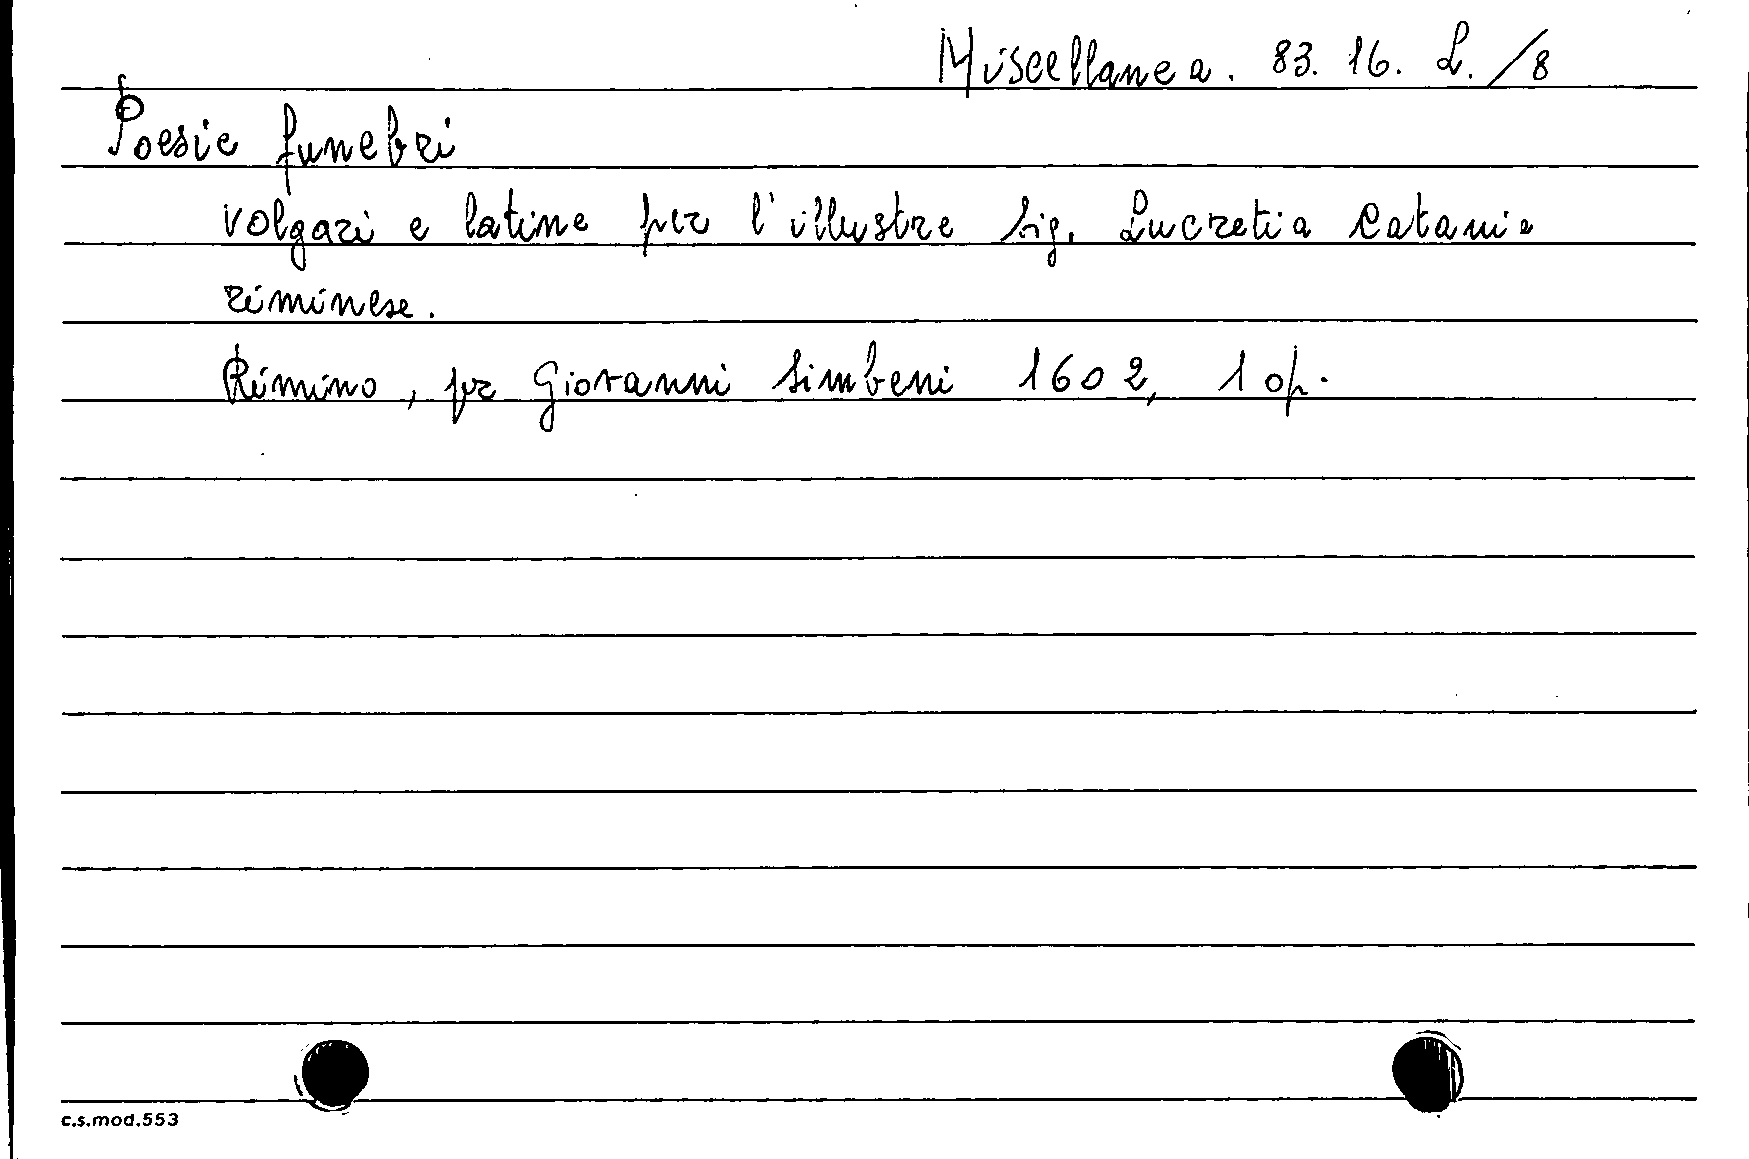 Miscellanea. 83. 16. L. /8
Poesie funebri
volgari e latine per l'illustre sig. Lucretia Catania
riminese.
Rimino, per Giovanni Simbeni 1602, 1 op.
c.s.mod.553